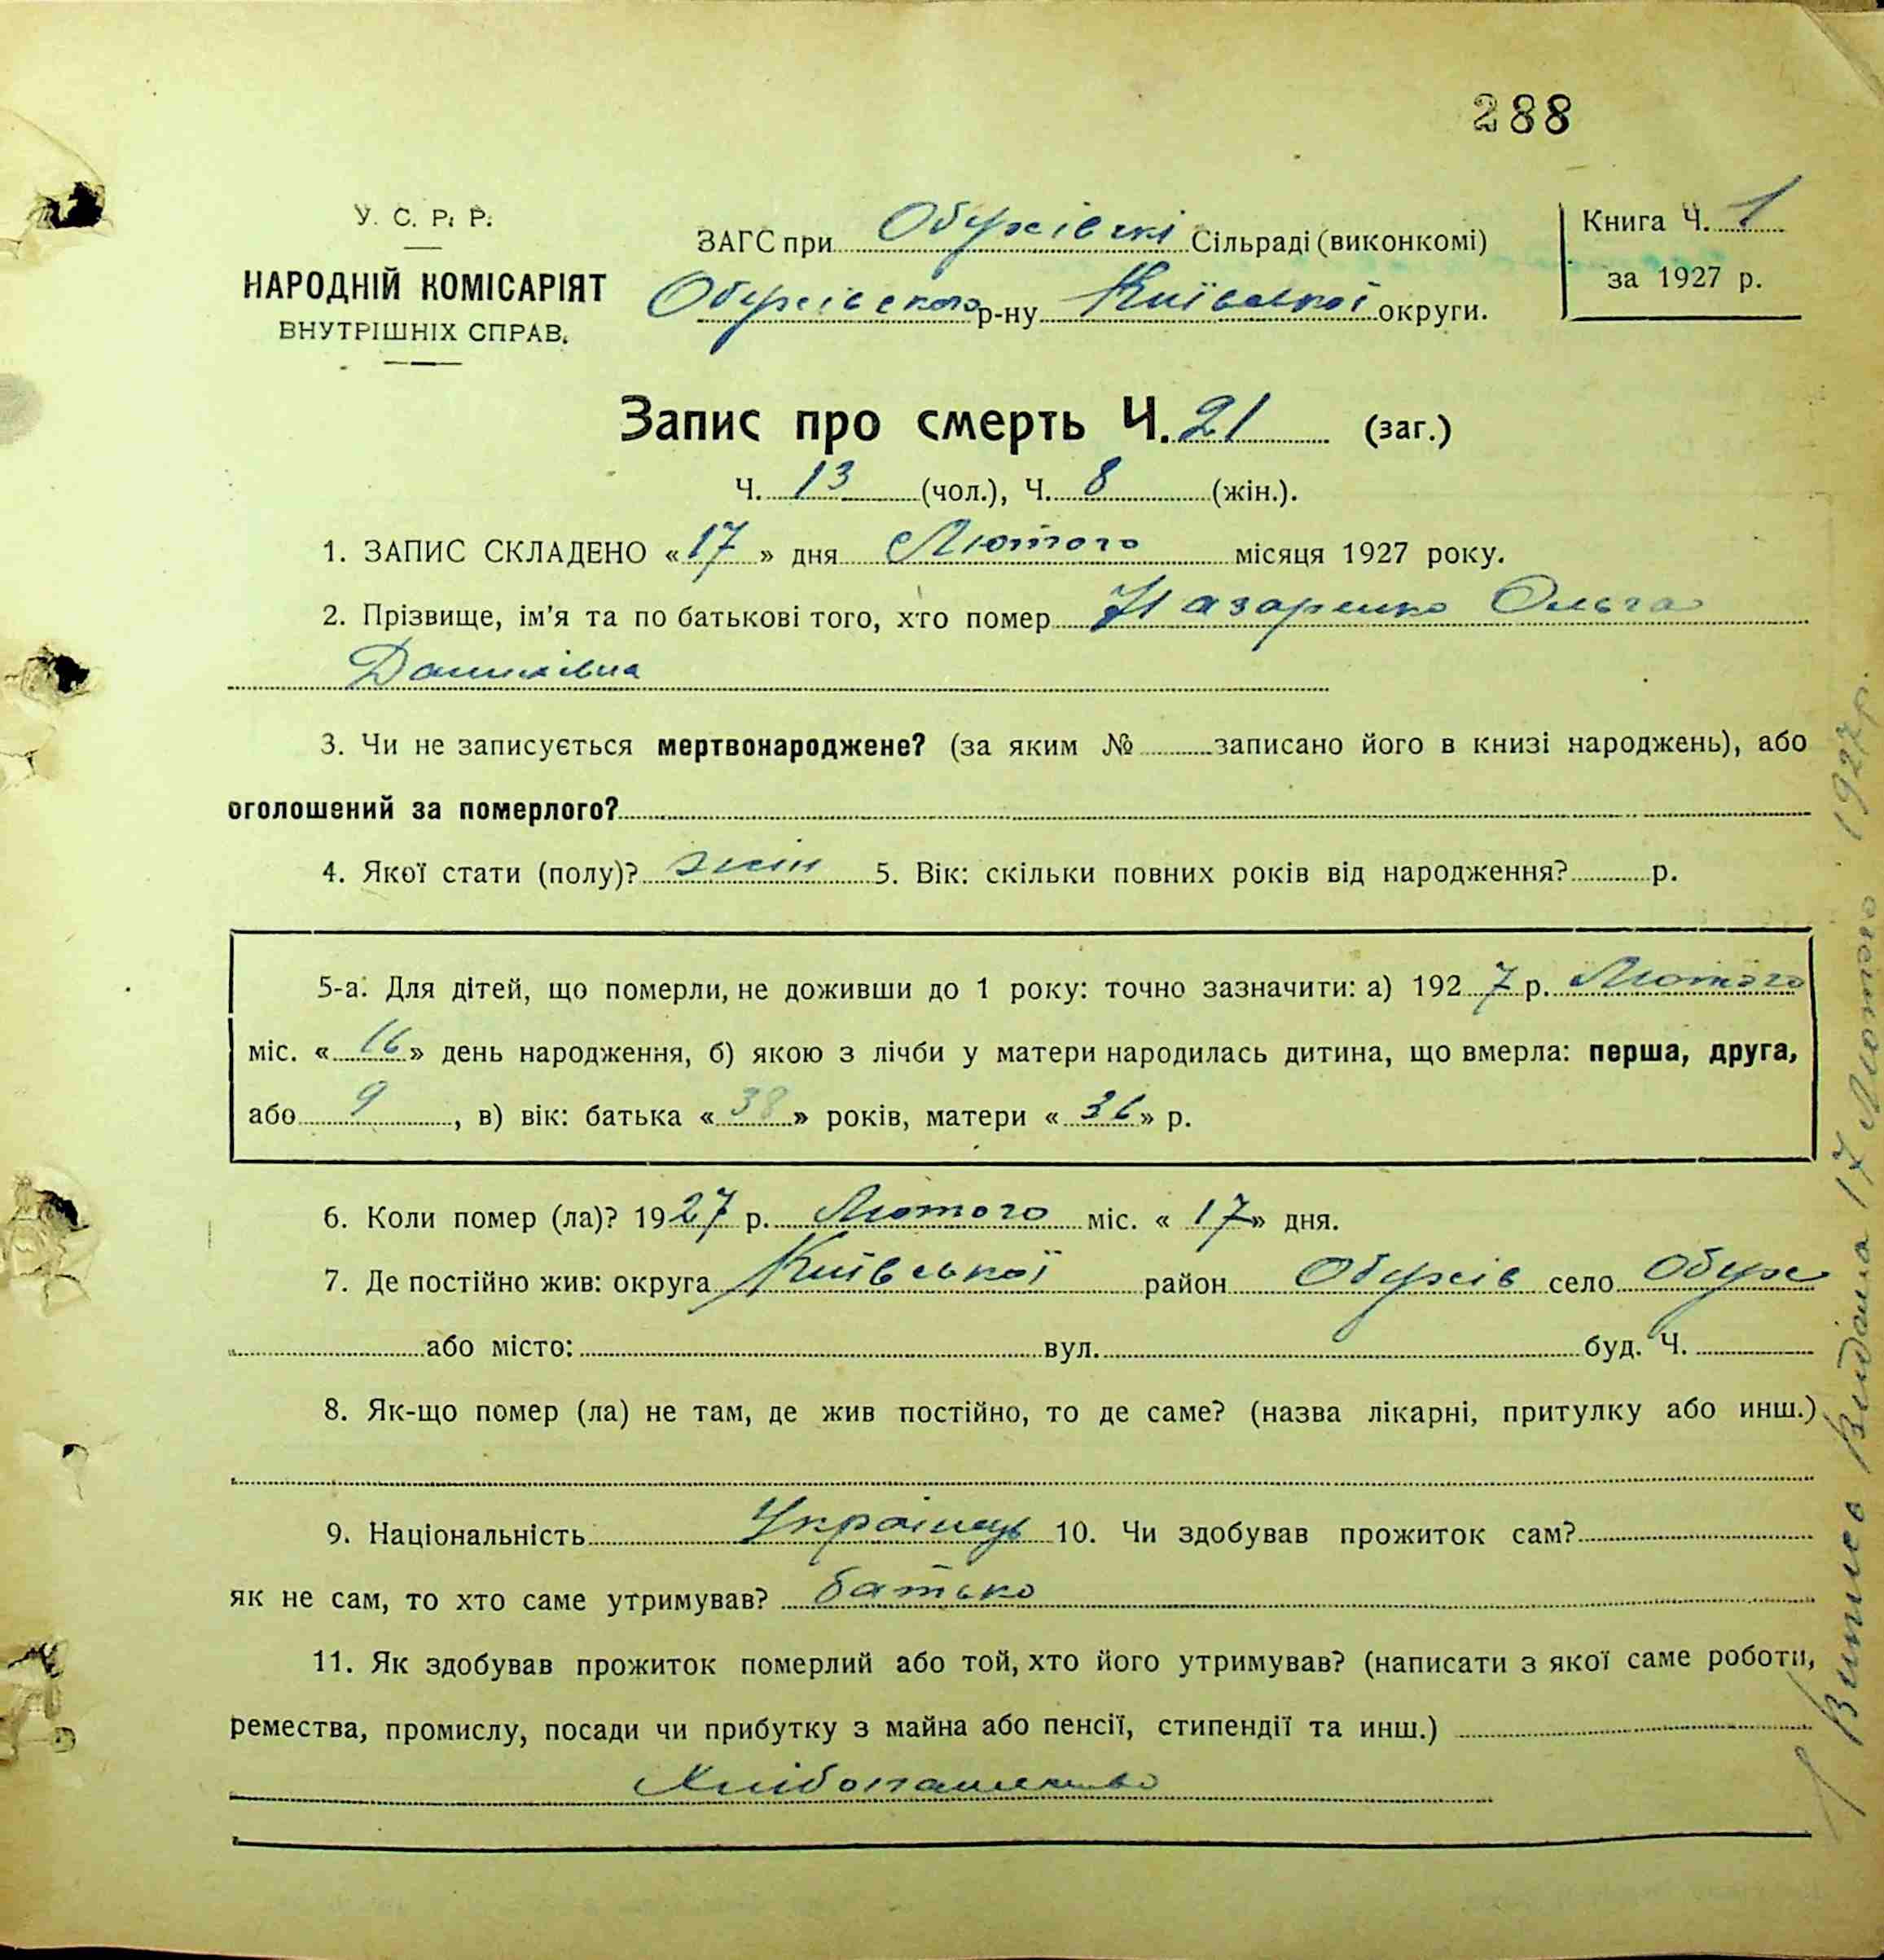 288
У. С. Р. Р.
НАРОДНІЙ КОМІСАРІЯТ
ВНУТРІШНІХ СПРАВ.
ЗАГС при Обухівскі Сільраді (виконкомі)
Обухівского р-ну Київської округи.
Книга Ч. 1
за 1927 р.
Запис про смерть Ч. 21 (заг.)
Ч. 13 (чол.), Ч. 8 (жін.).
1. ЗАПИС СКЛАДЕНО «17» дня Лютого місяця 1927 року.
2. Прізвище, ім'я та по батькові того, хто помер Назаренко Ольга
3. Чи не записується мертвонароджене? (за яким № записано його в книзі народжень), або
оголошений за померлого?
4. Якої стати (полу)? жін 5. Вік: скільки повних років від народження? р.
5-а. Для дітей, що померли, не доживши до 1 року: точно зазначити: а) 1927 р. Лютого
міс. «16» день народження, б) якою з лічби у матери народилась дитина, що вмерла: перша, друга,
або 9, в) вік: батька «38» років, матери «36» р.
6. Коли помер (ла)? 1927 р. Лютого міс. «17» дня.
7. Де постійно жив: округа Київської район Обухів село Обух
або місто: вул. буд. Ч.
8. Як-що помер (ла) не там, де жив постійно, то де саме? (назва лікарні, притулку або инш.)
9. Національність Українець 10. Чи здобував прожиток сам?
як не сам, то хто саме утримував? батько
11. Як здобував прожиток померлий або той, хто його утримував? (написати з якої саме роботи,
ремества, промислу, посади чи прибутку з майна або пенсії, стипендії та инш.)
Хлібопашество
Витяг видана 17 Лютого 1927 р.